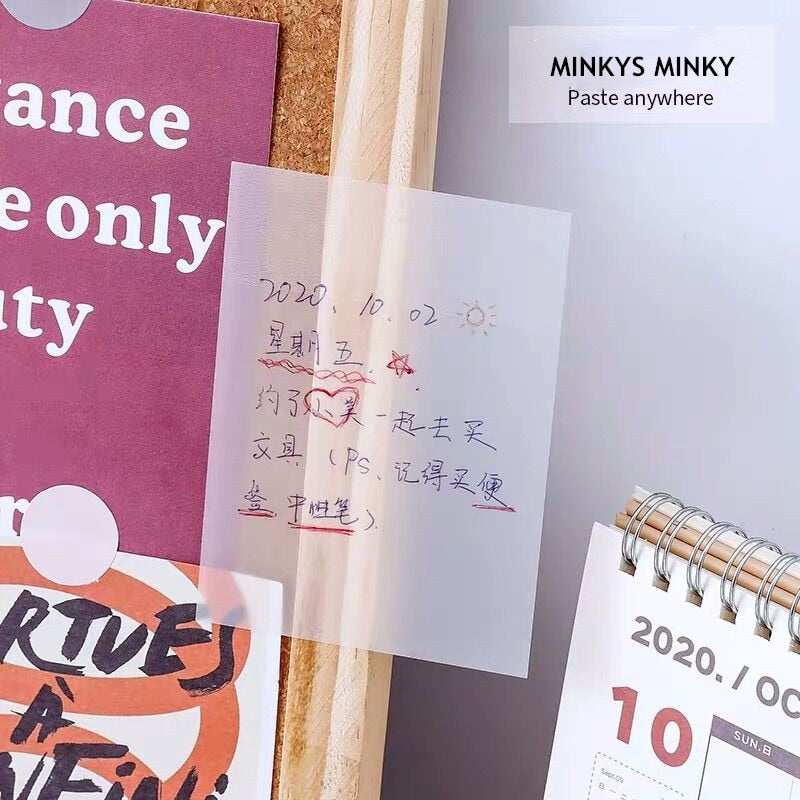 MINKYS MINKY
Paste anywhere
ance
e only
uty
2020. 10. 02
星期五.
约了小美一起去买
文具 (PS、记得买便
签 中性笔).
RTUES
À
2020. / OC
10
SUN.日
Sept.09
日